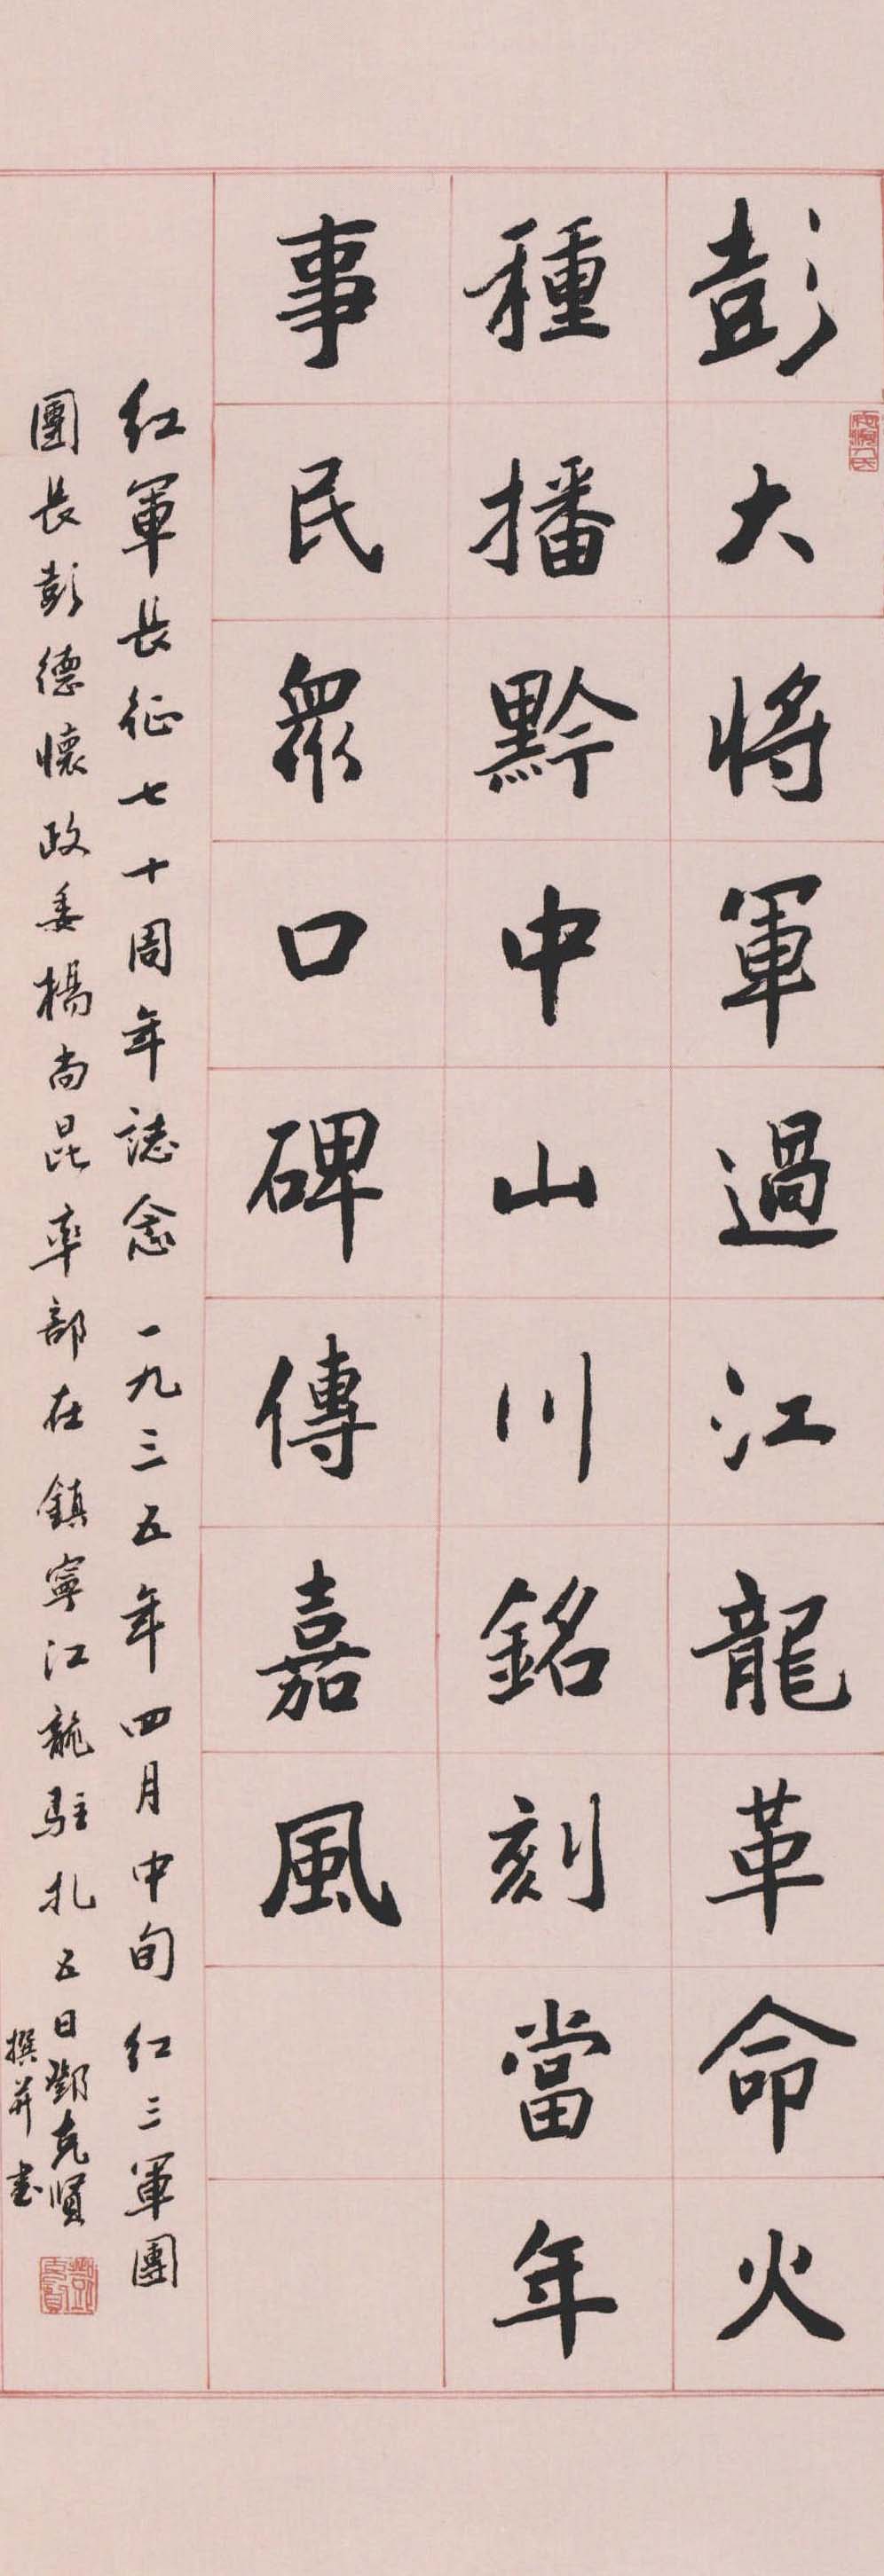 彭大將軍過江龍革命火
種播黔中山川銘刻當年
事民眾口碑傳嘉風
紅軍長征七十周年誌念 一九三五年四月中旬 紅三軍團
團長彭德懷政委楊尚昆率部在鎮寧江龍駐扎五日鄧克賢
撰并書